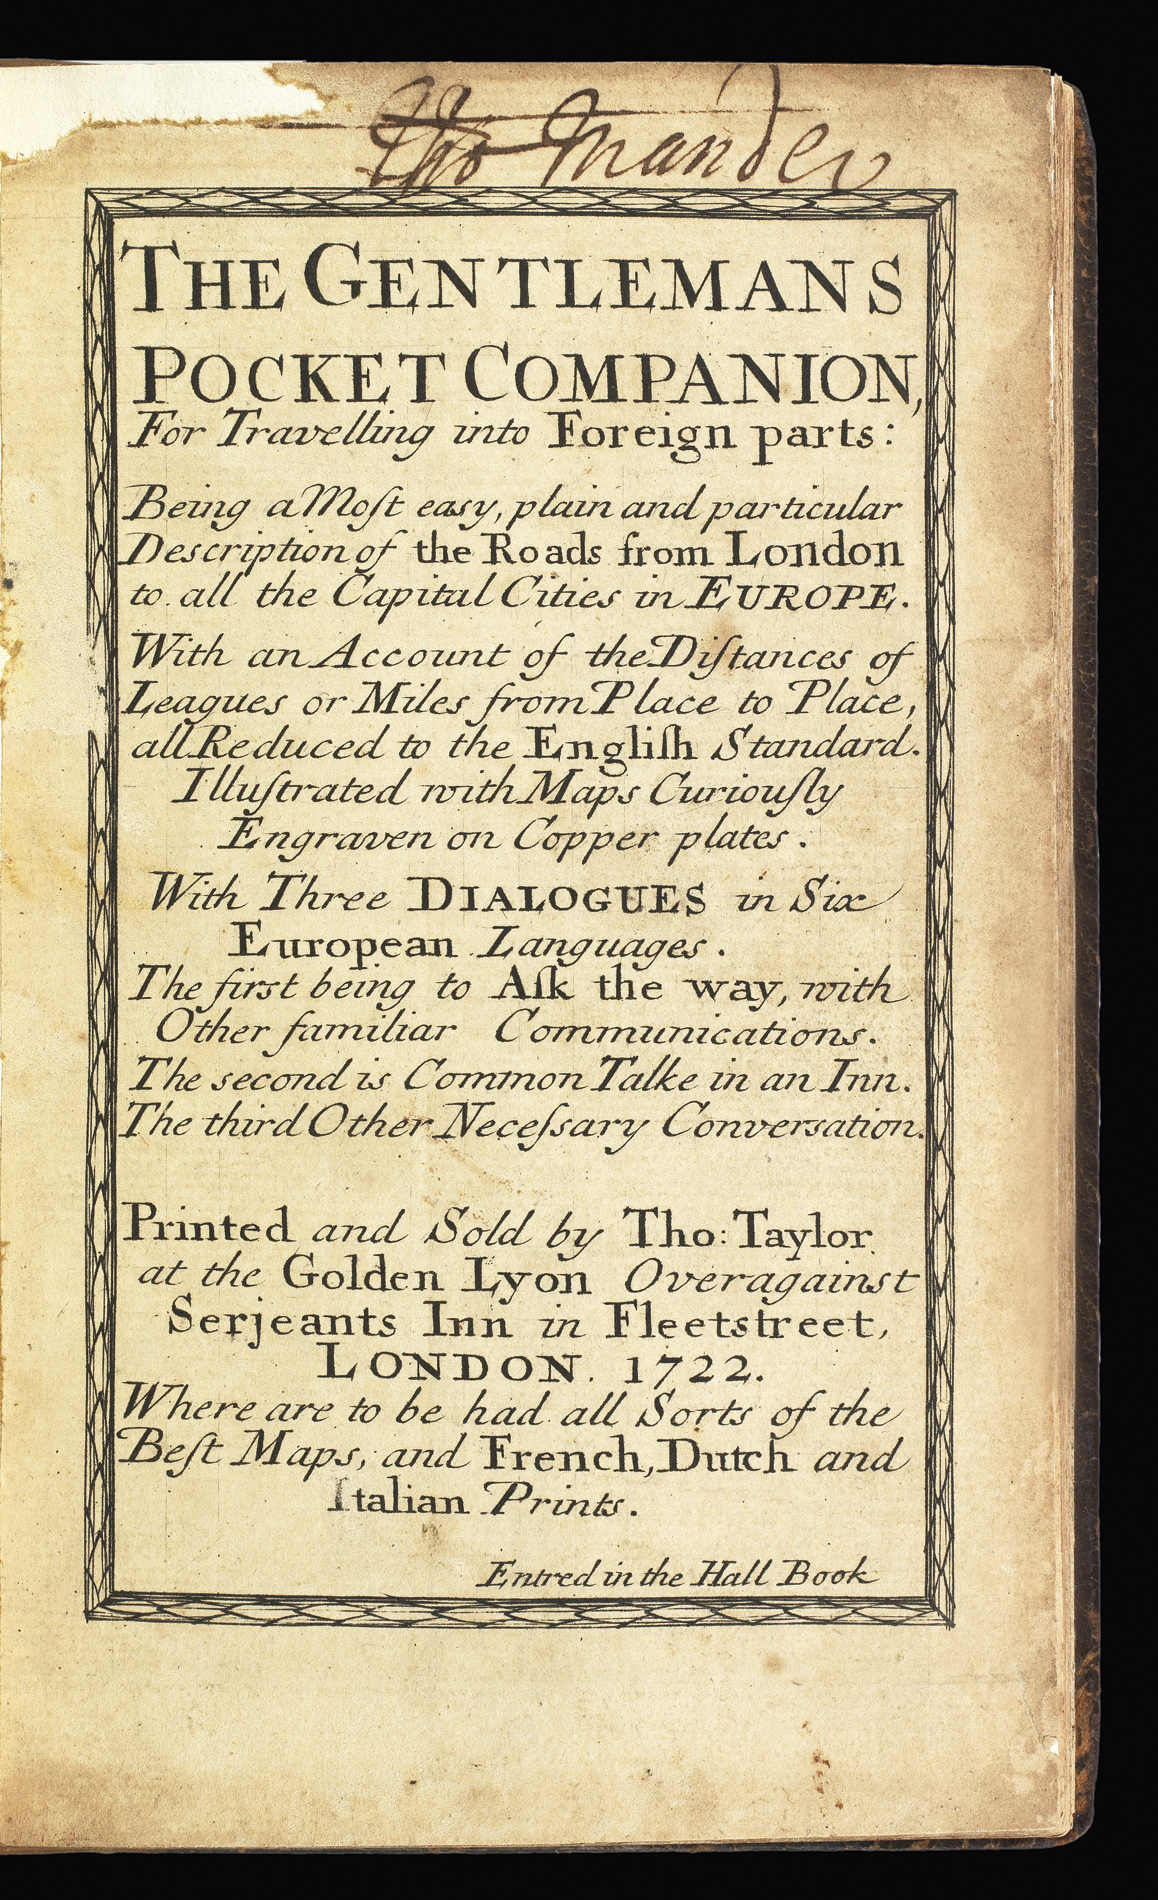 Tho Mander
THE GENTLEMANS
POCKET COMPANION,
For Travelling into Foreign parts:
Being a Moſt easy, plain and particular
Description of the Roads from London
to all the Capital Cities in EUROPE.
With an Account of the Diſtances of
Leagues or Miles from Place to Place,
all Reduced to the Engliſh Standard.
Illuſtrated with Maps Curiouſly
Engraven on Copper plates.
With Three DIALOGUES in Six
European Languages.
The first being to Aſk the way, with
Other familiar Communications.
The second is Common Talke in an Inn.
The third Other Neceſsary Conversation.
Printed and Sold by Tho: Taylor
at the Golden Lyon Overagainst
Serjeants Inn in Fleetstreet,
LONDON. 1722.
Where are to be had all Sorts of the
Beſt Maps, and French, Dutch and
Italian Prints.
Entred in the Hall Book